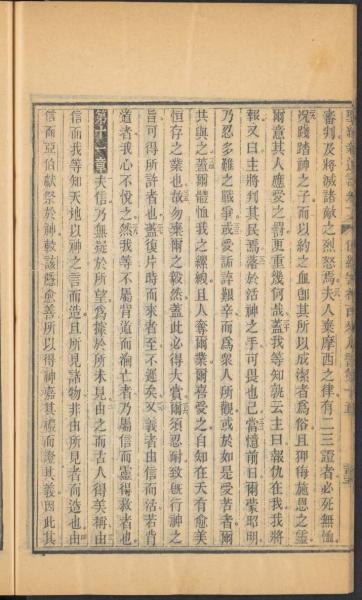 審判及將滅諸敵之烈怒焉夫人棄摩西之律有二三證者必死無恤
況踐踏神之子而以約之血卽其所以成潔者爲俗且狎侮施恩之靈
爾意其人應愛之罸更重幾何哉蓋我等知說云主曰報仇在我我將
報又曰主將判其民焉落於活神之手可畏也已當憶前日爾蒙昭明
乃忍多難之戰爭或愛詬誶艱辛而爲衆人所觀或於如是愛苦者爾
共與之蓋爾體恤我之縲絏且人奪爾業爾喜愛之自知在天有愈美
恒存之業也故勿棄爾之毅然蓋此必得大賞爾須忍耐致旣行神之
旨可得所許者也蓋復片時而來者至不遲矣又義者由信而活若背
道者我心不悅之然我等不屬背道而淪亡者乃屬信而靈得救者也
第十一章夫信乃無疑於所望爲據於所未見由之而古人得美稱由
信而我等知天地以神之言而造且所見諸物非由所見者而造也由
信而亞伯獻祭於神較該隱愈善所以得神嘉其禮而證其義因此其